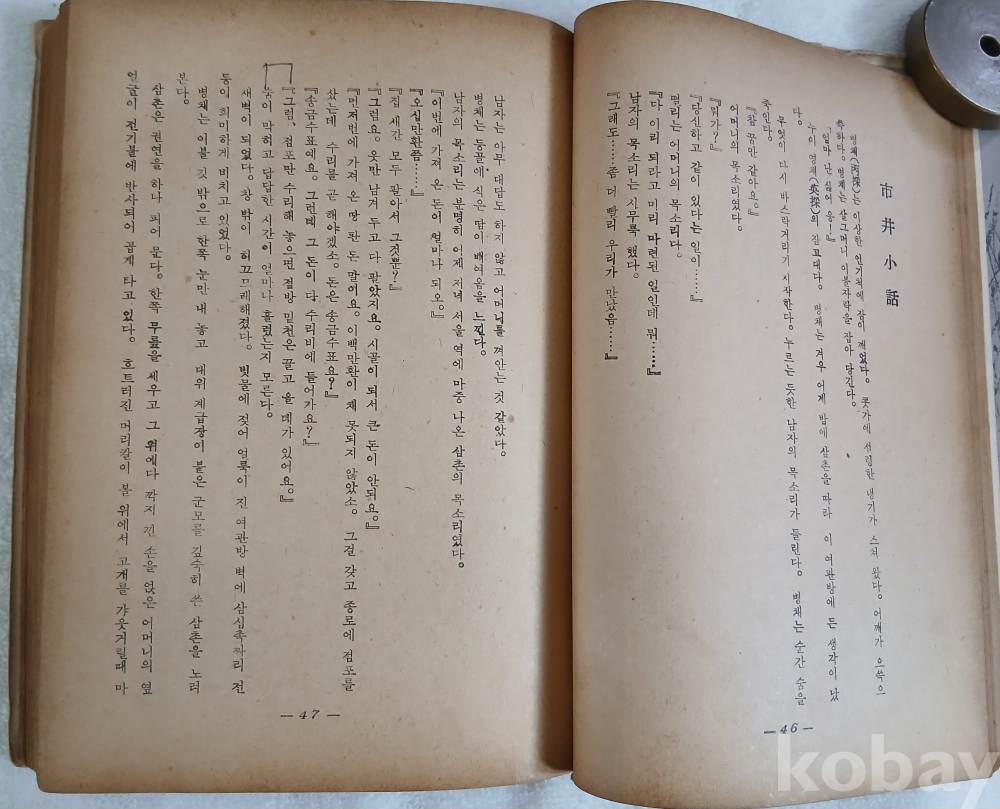 市井小話
병채(丙採)는 이상한 인기척에 잠이 깨었다. 콧가에 서림한 냉기가 스쳐 왔다. 어깨가 으쓱으
쓱하다. 병채는 살그머니 이불자락을 잡아 당긴다.
『엄마 난 싫어 응!』
누이 영채(英採)의 잠고대다. 병채는 겨우 어제 밤에 삼촌을 따라 이 여관방에 든 생각이 났
다.
무엇이 다시 바스락거리기 시작한다. 누르는 듯한 남자의 목소리가 들린다. 병채는 순간 숨을
죽인다.
『참 꿈만 같아요。』
어머니의 목소리였다.
『뭐가?』
『당신하고 같이 있다는 일이……』
떨리는 어머니의 목소리다.
『다 이리 되라고 미리 마련된 일인데 뭐……』
남자의 목소리는 시무룩 했다.
『그래도……좀 더 빨리 우리가 만났음……』
— 46 —
남자는 아무 대답도 하지 않고 어머니를 껴안는 것 같았다.
병채는 등골에 식은 땀이 배여옴을 느낀다.
남자의 목소리는 분명히 어제 저녁 서울 역에 마중 나온 삼촌의 목소리였다.
『이번에 가져 온 돈이 얼마나 되오』
『오십만환쯤……』
『집 세간 모두 팔아서 그것뿐?』
『그럼요。 옷만 남겨 두고 다 팔았지요。 시골이 되서 큰 돈이 안되요。』
『먼저번에 가져 온 땅 판 돈 말여요。 이백만환이 채 못되지 않았소。 그걸 갖고 종로에 점포를
샀는데 수리를 곧 해야겠소。 돈은 송금수표요?』
『송금수표예요。 그런데 그 돈이 다 수리비에 들어가요?』
『그럼, 점포만 수리해 놓으면 결방 밑천은 끌고 올 데가 있어요。』
숨이 막히고 답답한 시간이 얼마나 흘렀는지 모른다.
새벽이 되었다. 창 밖이 허끄므레해졌다. 빗물에 젖어 얼룩이 진 여관방 벽에 삼십촉짜리 전
등이 희미하게 비치고 있었다.
병채는 이불 깃 밖으로 한쪽 눈만 내 놓고 대위 계급장이 붙은 군모를 깊숙히 쓴 삼촌을 노려
본다.
삼촌은 권연을 하나 피어 문다. 한쪽 무릎을 세우고 그 위에다 깍지 낀 손을 얹은 어머니의 옆
얼굴이 전기불에 반사되어 곱게 타고 있다. 흐트러진 머리칼이 볼 위에서 고개를 갸웃거릴때 마
— 47 —
kobay